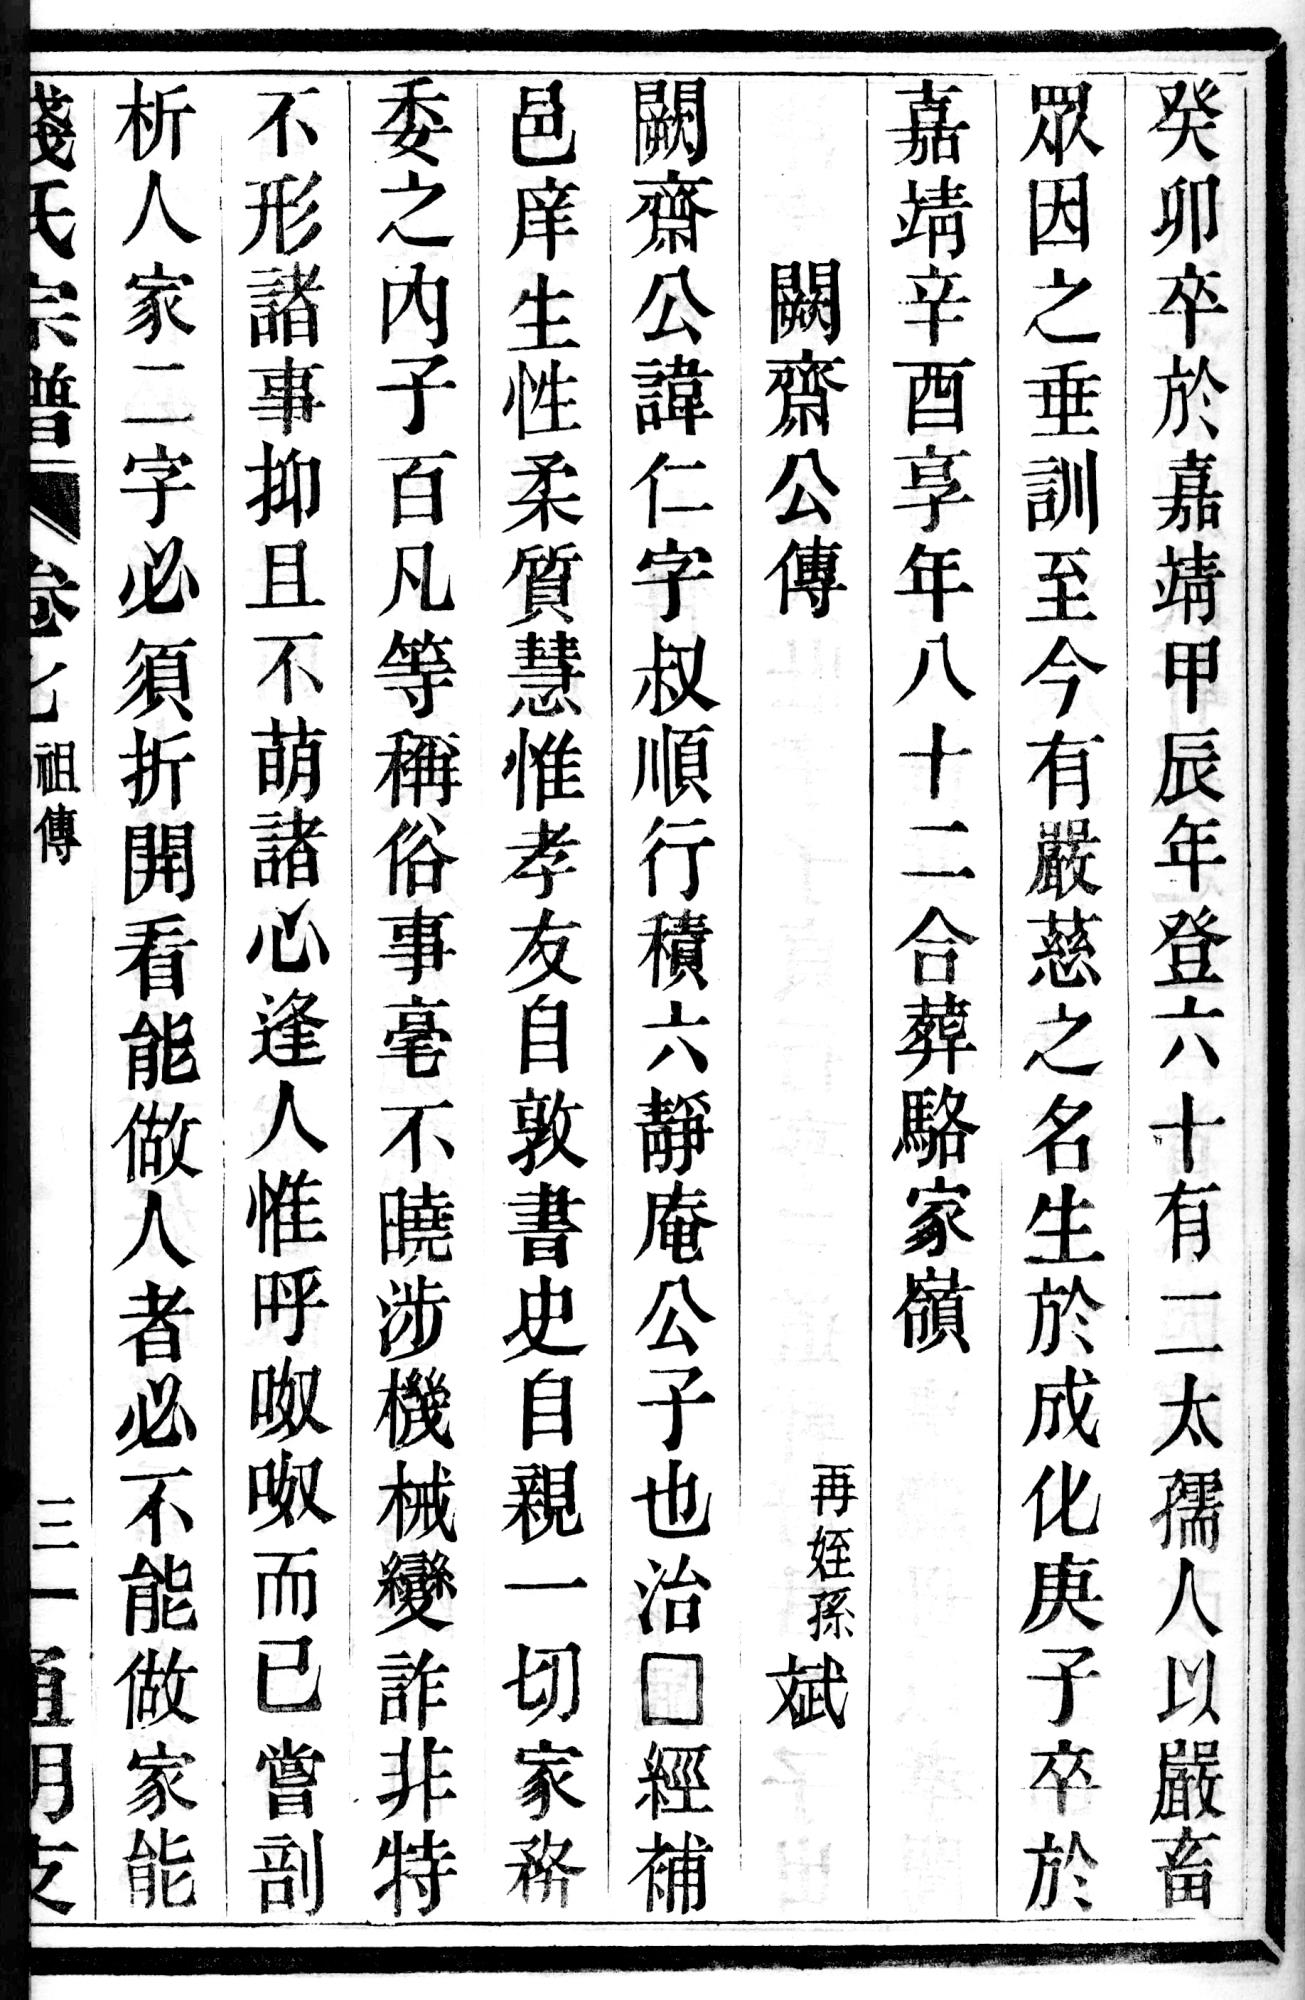 癸卯卒於嘉靖甲辰年登六十有二太孺人以嚴畜
眾因之垂訓至今有嚴慈之名生於成化庚子卒於
嘉靖辛酉享年八十二合葬駱家嶺
闕齋公傳
再姪孫斌
闕齋公諱仁字叔順行積六靜庵公子也治□經補
邑庠生性柔質慧惟孝友自敦書史自親一切家務
委之內子百凡等稱俗事毫不曉涉機械變詐非特
不形諸事抑且不萌諸心逢人惟呼呶呶而已嘗剖
析人家二字必須折開看能做人者必不能做家能
錢氏宗譜 卷七 祖傳 三一 通明支